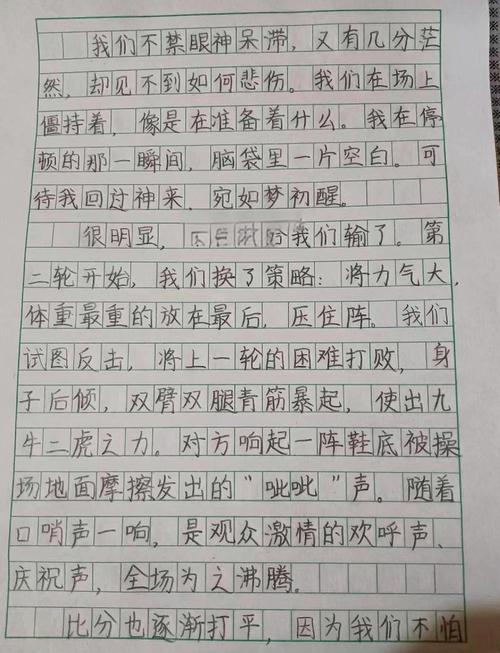 我们不禁眼神呆滞，又有几分茫
然，却见不到如何悲伤。我们在场上
僵持着，像是在准备着什么。我在停
顿的那一瞬间，脑袋里一片空白。可
待我回过神来，宛如梦初醒。
很明显，我们输了。第
二轮开始，我们换了策略：将力气大，
体重最重的放在最后，压住阵。我们
试图反击，将上一轮的困难打败，身
子后倾，双臂双腿青筋暴起，使出九
牛二虎之力。对方响起一阵鞋底被操
场地面摩擦发出的“呲呲”声。随着
口哨声一响，是观众激情的欢呼声、
庆祝声，全场为之沸腾。
比分也逐渐打平，因为我们不怕